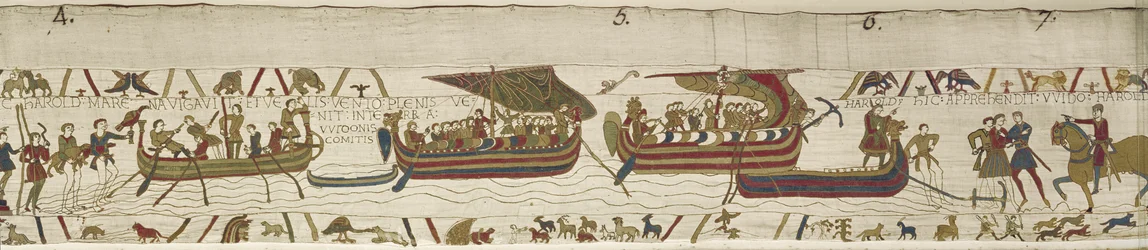 4.
5.
6.
7.
HAROLD: MARE: NAVIGAVIT: ET VELIS: VENTO: PLENIS VE:
NIT: INTERRA:
VVIDONIS
COMITIS
HAROLD:
HIC: APPREHENDIT: VVIDO: HAROL